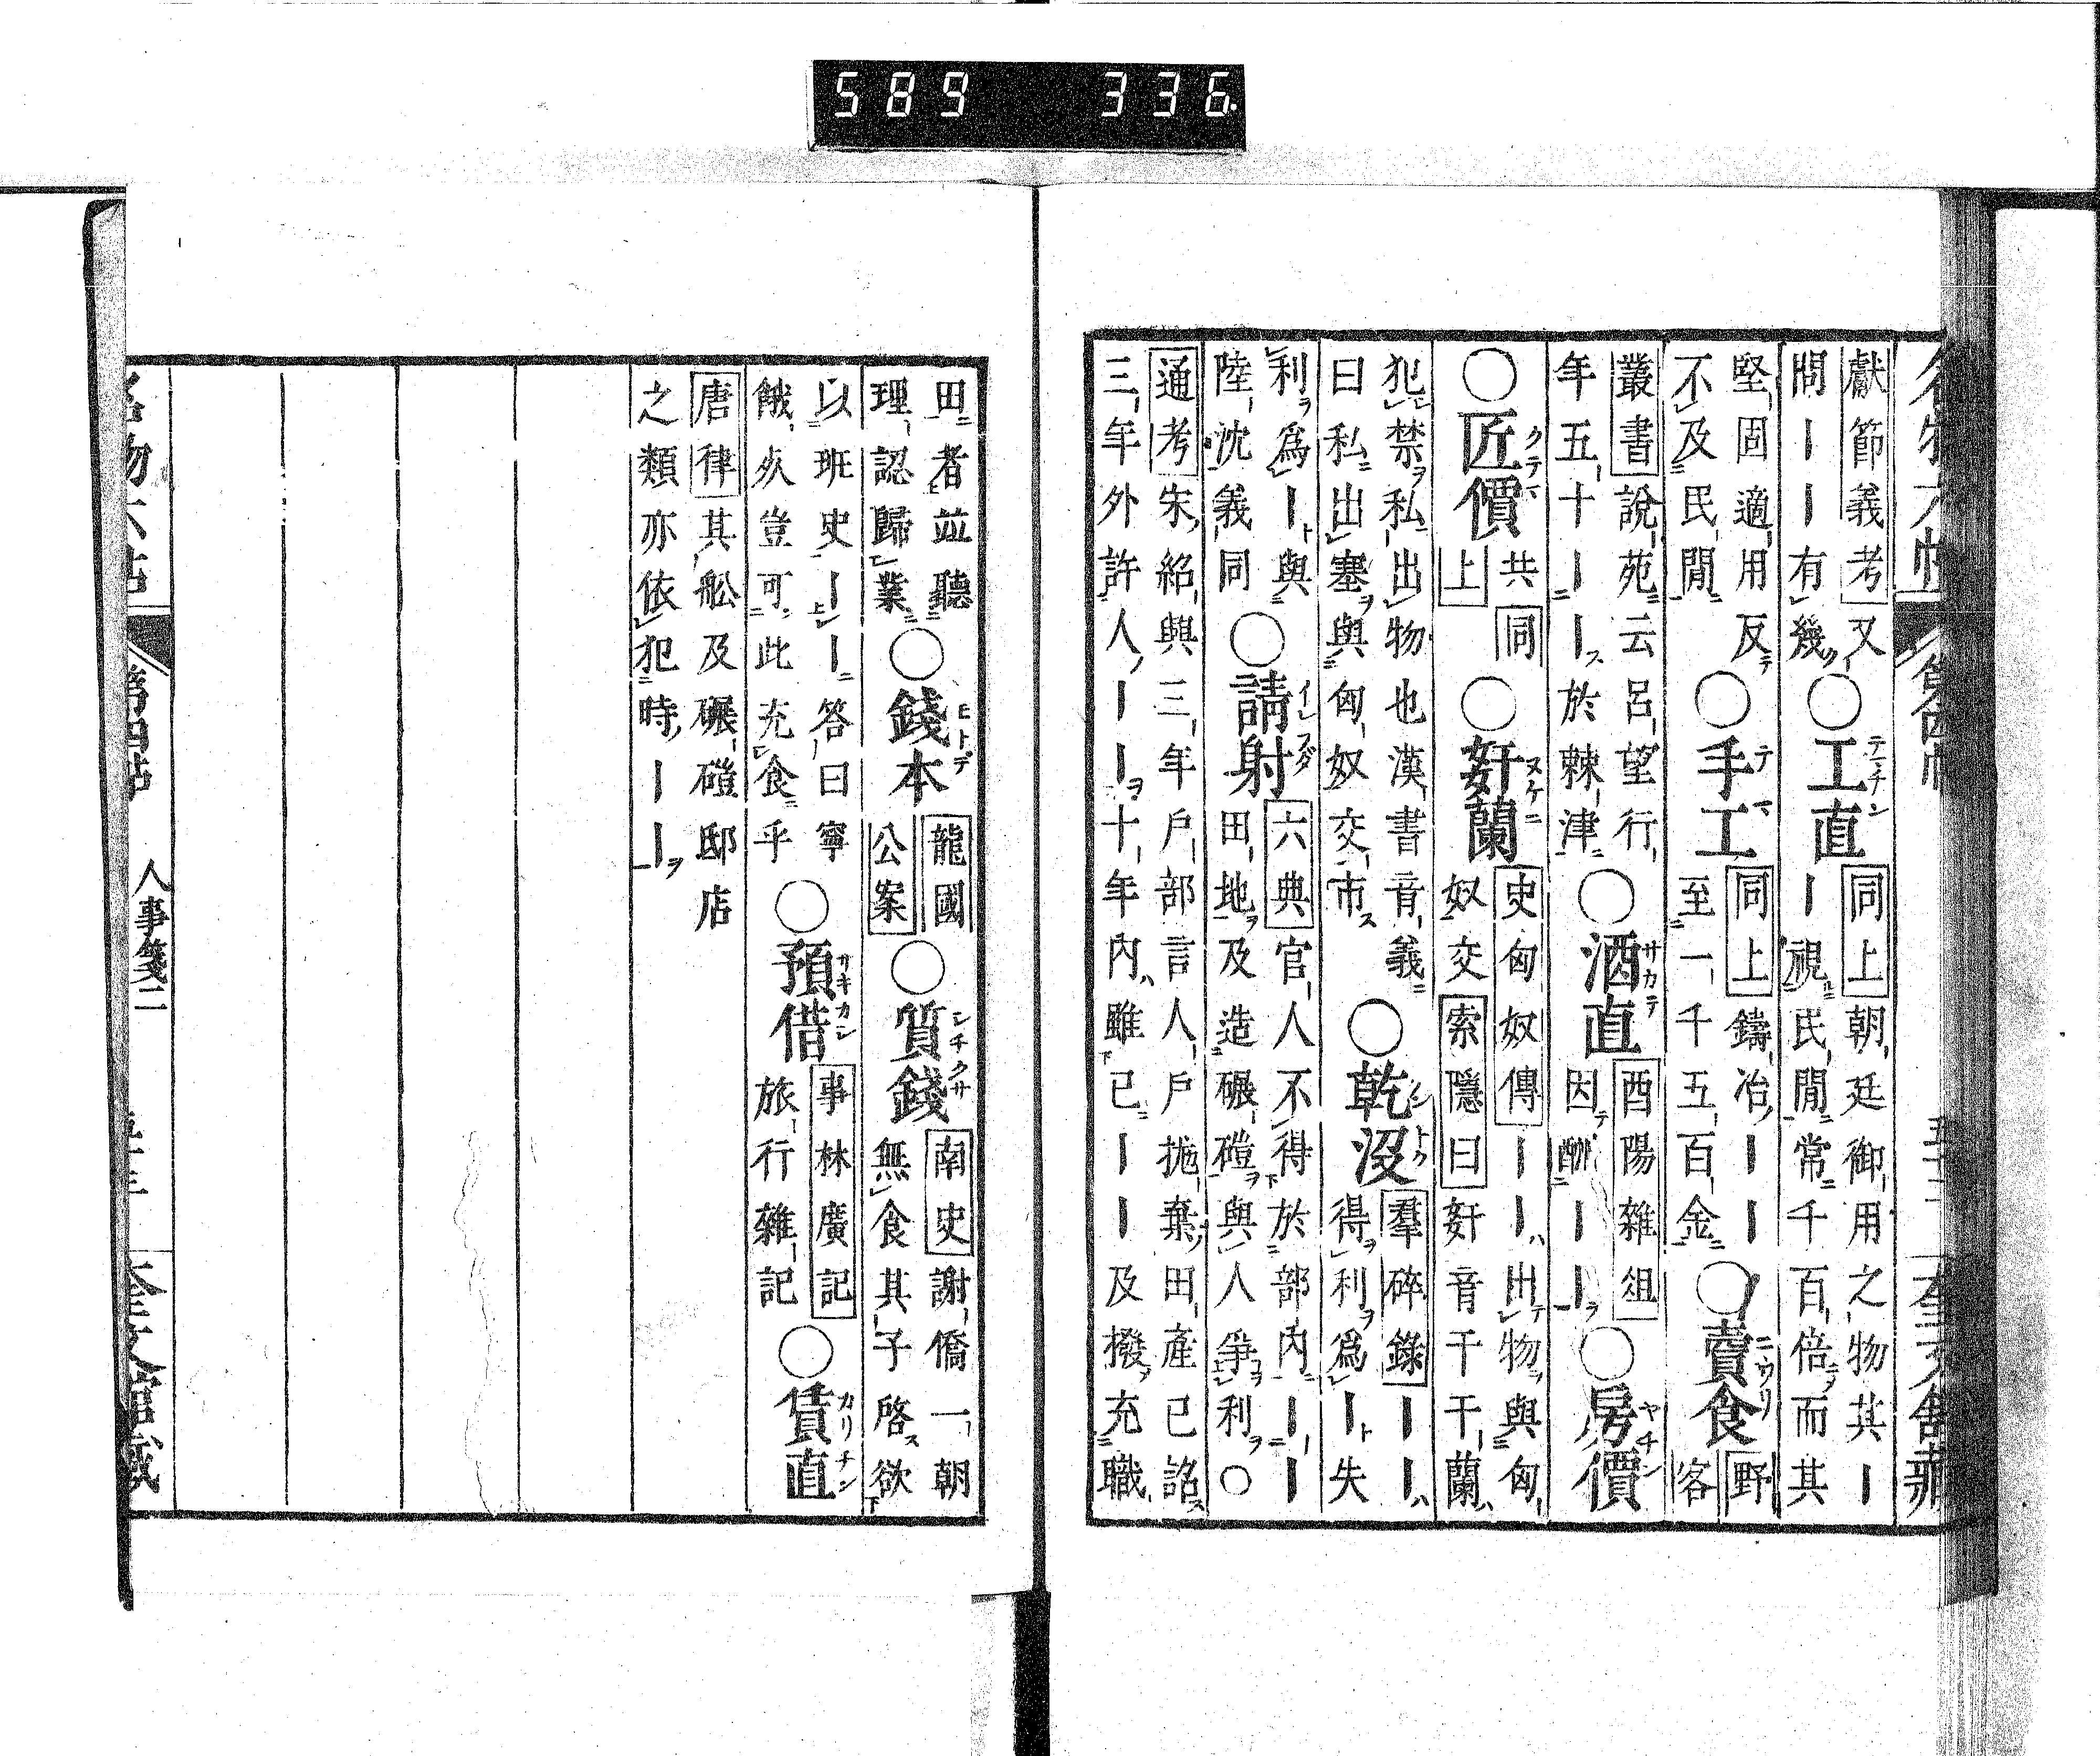 589 336
名物六帖 第四帖 五十二 奎文館藏
獻節義考又
間｜｜有幾
〇工直 テマチン
同上朝廷御用之物其｜
｜視民間常千百倍而其
堅固適用反
不及民間
〇手工 テマ
同上鑄冶｜｜
至一千五百金
〇賣食 ニウリ
野
客
叢書說苑云呂望行
年五十｜｜於棘津
〇酒直 サカテ
酉陽雜俎
因酬｜｜
〇房價 ヤチン
〇匠價
共同
上
〇奸蘭 ヌケニ
史匈奴傳｜｜出物與匈
奴交索隱曰奸音干干蘭
犯禁私出物也漢書音義
曰私出塞與匈奴交市
〇乾沒
羣碎錄｜｜
得利爲｜失
利爲｜與
陸沈義同
〇請射
六典官人不得於部內｜｜
田地及造碾磑與人爭利〇
通考宋紹興三年戶部言人戶拋棄田產已詔
三年外許人｜｜十年內雖已｜｜及撥充職
田者並聽
理認歸業
〇錢本 ヒトデ
龍國
公案
〇質錢 シチクサ
南史謝僑一朝
無食其子啓欲
以班史｜｜答曰寧
餓死豈可此充食乎
〇預借 サキカシ
事林廣記
旅行雜記
〇賃直 カリチン
唐律其舩及碾磑邸店
之類亦依犯時｜｜
名物六帖 第四帖 人事箋二 奎文館藏